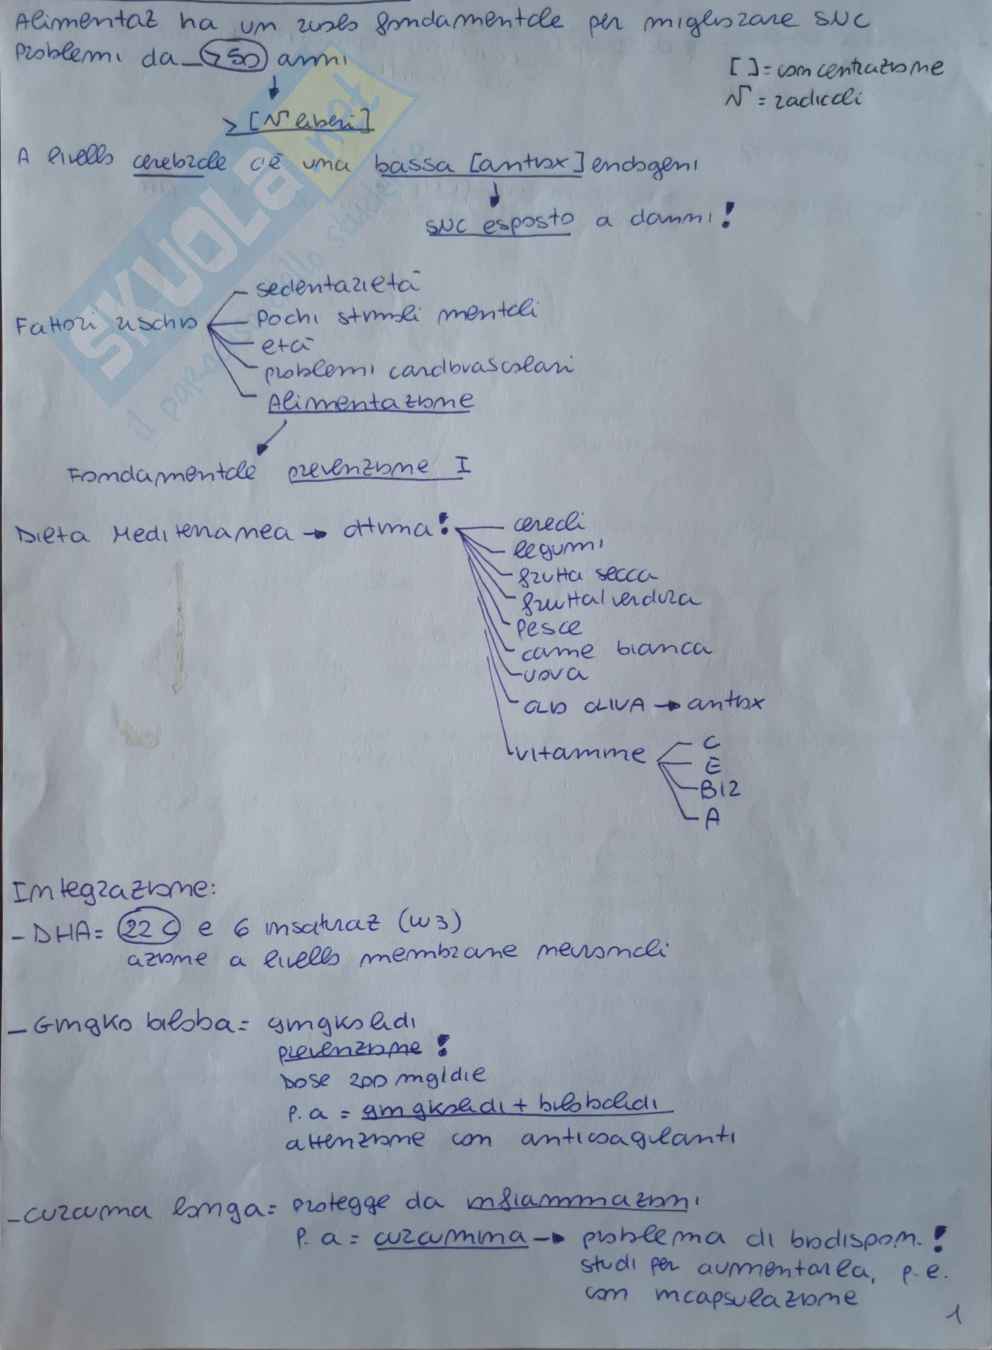 Alimentaz ha un ruolo fondamentale per migliorare SNC
Problemi da >50 anni
[ ] = concentrazione
√ = radicali
> [√ liberi]
A livello cerebrale c'è una bassa [antiox] endogeni
SNC esposto a danni!
Fattori rischio
sedentarietà
Pochi stimoli mentali
età
problemi cardiovascolari
Alimentazione
Fondamentale prevenzione I
Dieta Mediterranea → ottima!
cereali
legumi
frutta secca
frutta/verdura
Pesce
carne bianca
uova
olio oliva → antiox
vitamine
C
E
B12
A
Integrazione:
- DHA = 22 C e 6 insaturaz (w3)
azione a livello membrane neuronali
- Ginkgo biloba = ginkgolidi
prevenzione!
Dose 200 mg/die
P.a = ginkgolidi + bilobalidi
attenzione con anticoagulanti
- curcuma longa = protegge da infiammazioni
P.a = curcumina → problema di biodispon.!
studi per aumentarla, p.e.
con incapsulazione
1
SKUOLA.net
il paradiso dello studente